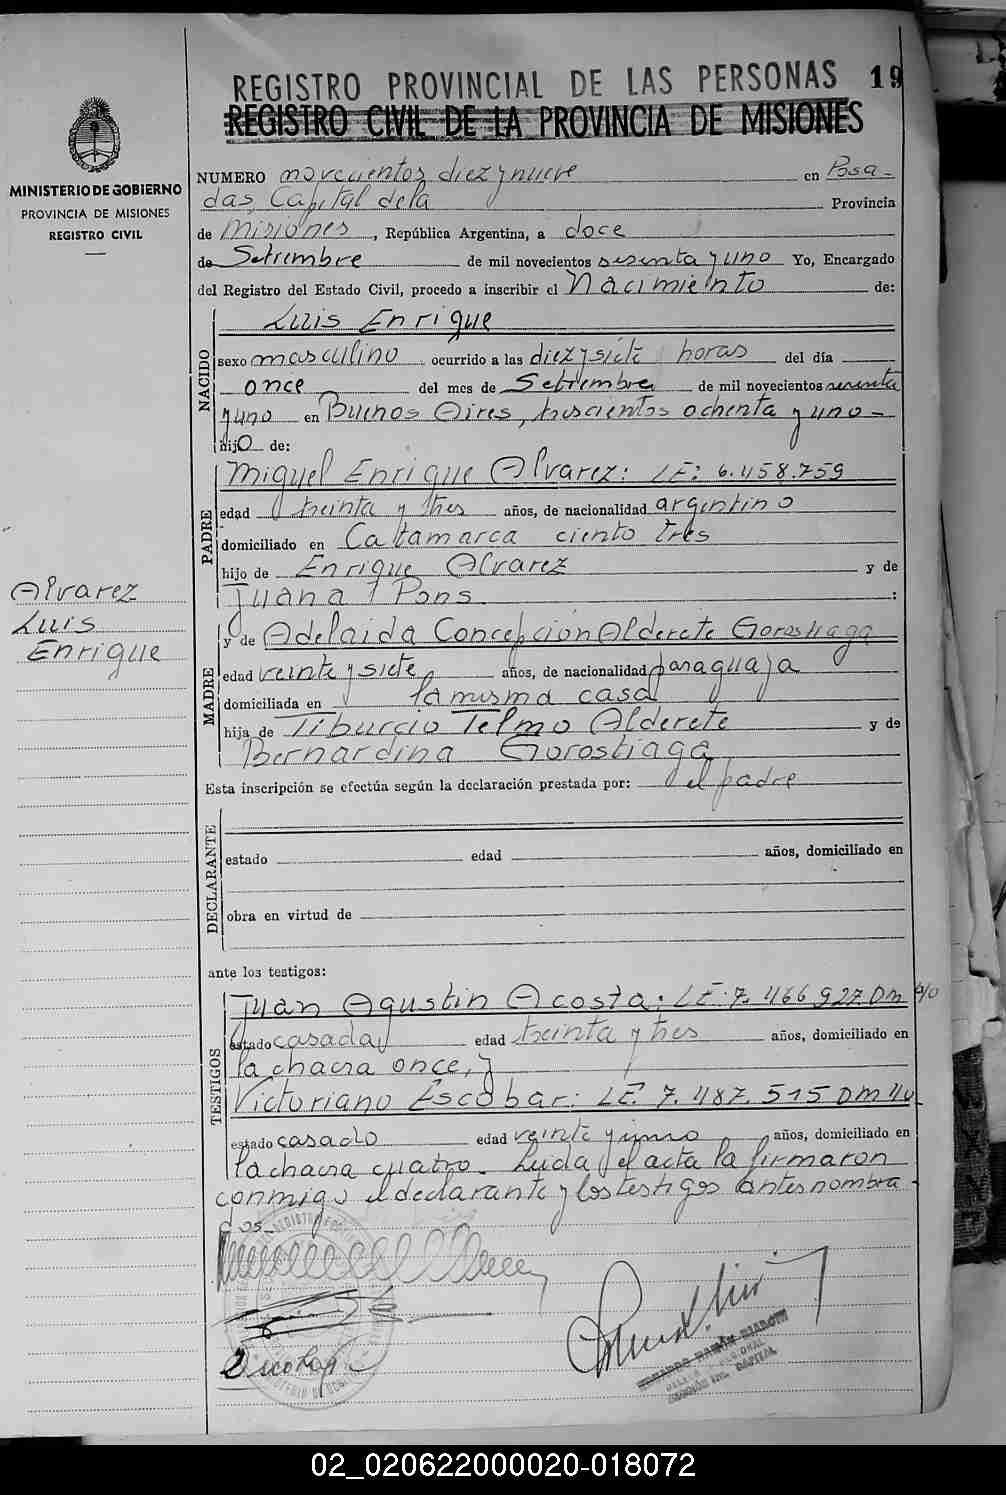 REGISTRO PROVINCIAL DE LAS PERSONAS 19
REGISTRO CIVIL DE LA PROVINCIA DE MISIONES
MINISTERIO DE GOBIERNO
PROVINCIA DE MISIONES
REGISTRO CIVIL
NUMERO novecientos diez y nueve en Posa-
das, Capital de la Provincia
de Misiones, República Argentina, a doce
de Setiembre de mil novecientos sesenta y uno Yo, Encargado
del Registro del Estado Civil, procedo a inscribir el Nacimiento de:
NACIDO
Luis Enrique
sexo masculino ocurrido a las diez y siete horas del día
once del mes de Setiembre de mil novecientos sesenta
y uno en Buenos Aires, trescientos ochenta y uno-
hijo de:
PADRE
Miguel Enrique Alvarez: LE: 6.458.759
edad treinta y tres años, de nacionalidad argentino
domiciliado en Catamarca ciento tres
hijo de Enrique Alvarez y de
Juana Pons :
Alvarez
Luis
Enrique
MADRE
y de Adelaida Concepción Alderete Gorostiaga
edad veinte y siete años, de nacionalidad paraguaya
domiciliada en la misma casa
hija de Tiburcio Telmo Alderete y de
Bernardina Gorostiaga
Esta inscripción se efectúa según la declaración prestada por: el padre
DECLARANTE
estado edad años, domiciliado en
obra en virtud de
ante los testigos:
TESTIGOS
Juan Agustin Acosta: LE: 7.466.927. DM 40
estado casado edad treinta y tres años, domiciliado en
la chacra once, y
Victoriano Escobar: LE. 7.487.515 DM 40
estado casado edad veinte y uno años, domiciliado en
la chacra cuatro. Leida el acta la firmaron
conmigo el declarante y los testigos antes nombra-
dos.
02_020622000020-018072